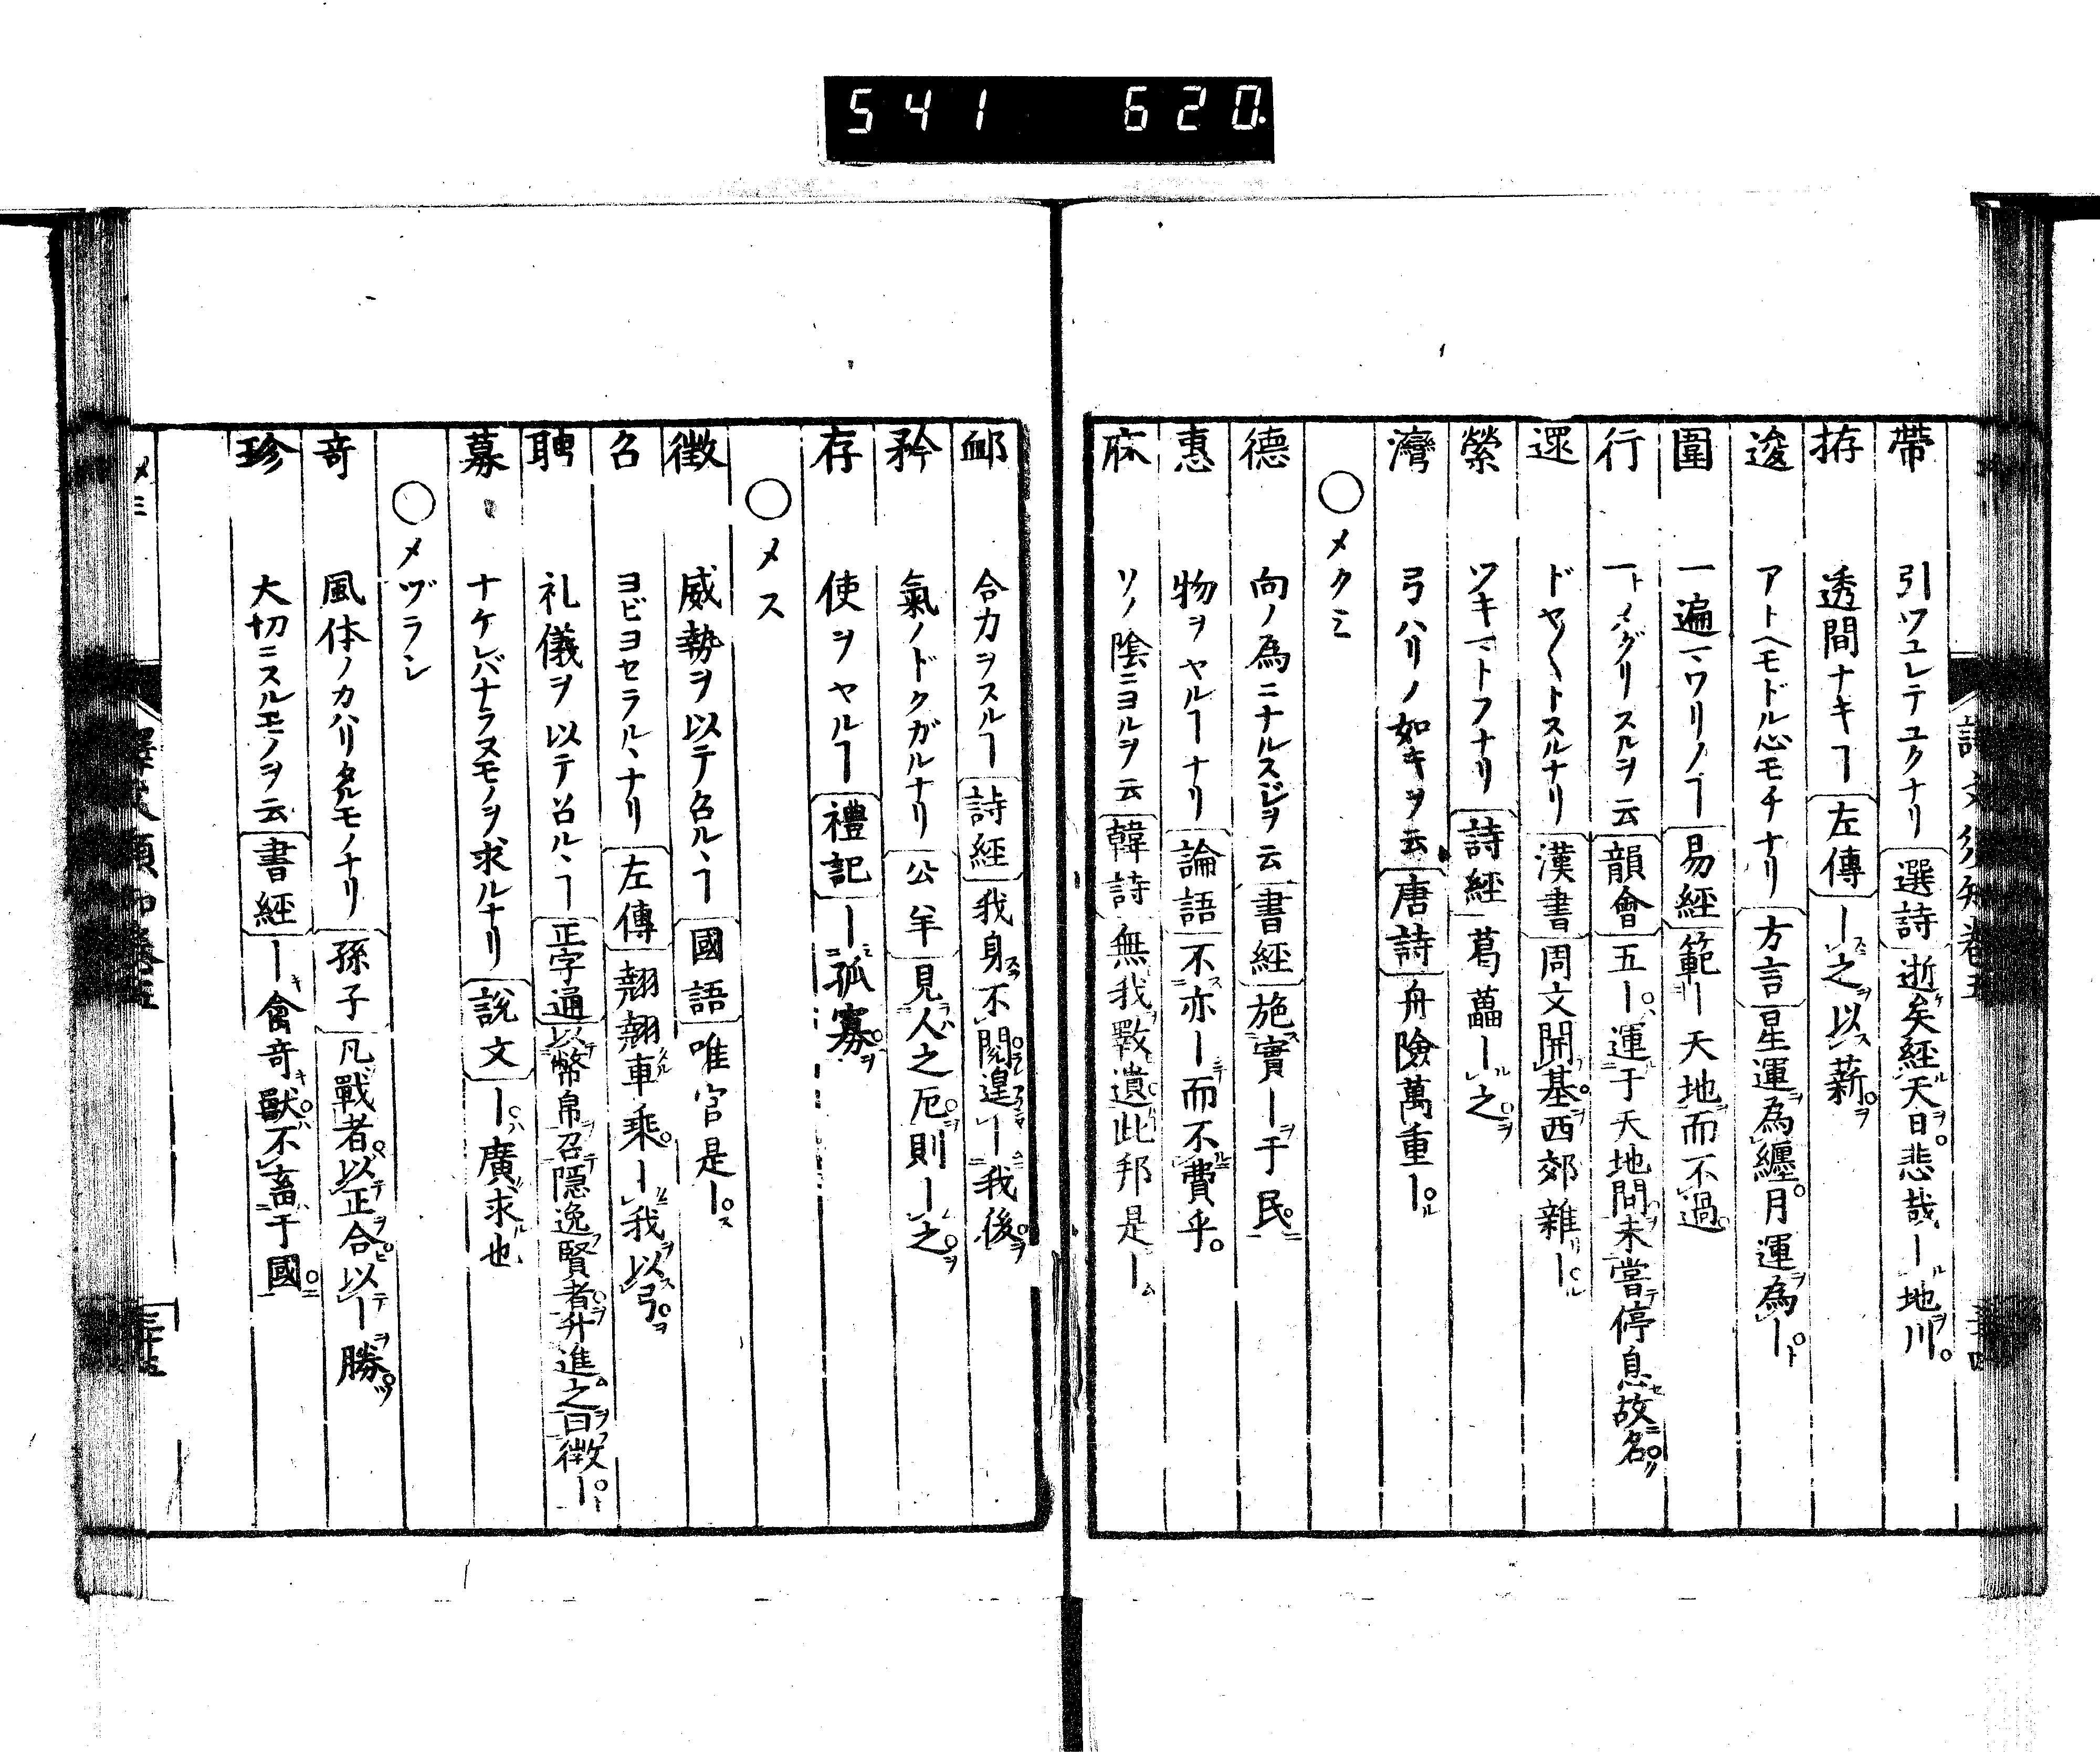 541 620.
帶 引ツユレテユクナリ 選詩 逝矣経天日悲哉ー地川
拵 透間ナキヿ 左傳 ー之以薪
逡 アトヘモドル心モチナリ 方言 星運為纏月運為ー
圍 一遍一ワリノヿ 易經 範ー天地而不過
行 一トメグリスルヲ云 韻會 五ー運于天地間未嘗停息故名
還 ドヤ〱トスルナリ 漢書 周文開基西郊雜ー
縈 ワキマトフナリ 詩經 葛藟ー之
灣 弓ハリノ如キヲ云 唐詩 舟險萬重ー
○メクミ
德 向ノ為ニナルスジヲ云 書經 施實ー于民
惠 物ヲヤルヿナリ 論語 不亦ー而不費乎
庥 リノ陰ニヨルヲ云 韓詩 無我斁遺此邦是ー
䘏 合力ヲスルヿ 詩經 我身不閲遑ー我後
矜 氣ノドクガルナリ 公羊 見人之厄則ー之
存 使ヲヤルヿ 禮記 ー孤寡
○メス
徴 威勢ヲ以テ召ルヽヿ 國語 唯官是ー
召 ヨビヨセラルヽナリ 左傳 翹翹車乘ー我以弓
聘 礼儀ヲ以テ召ルヽヿ 正字通 以幣帛召隠逸賢者升進之曰徴ー
募 ナケレバナラヌモノヲ求ルナリ 說文 ー廣求也
○メヅラシ
竒 風体ノカハリタルモノナリ 孫子 凡戰者以正合以ー勝
珍 大切ニスルモノヲ云 書經 ー禽竒獸不畜于國